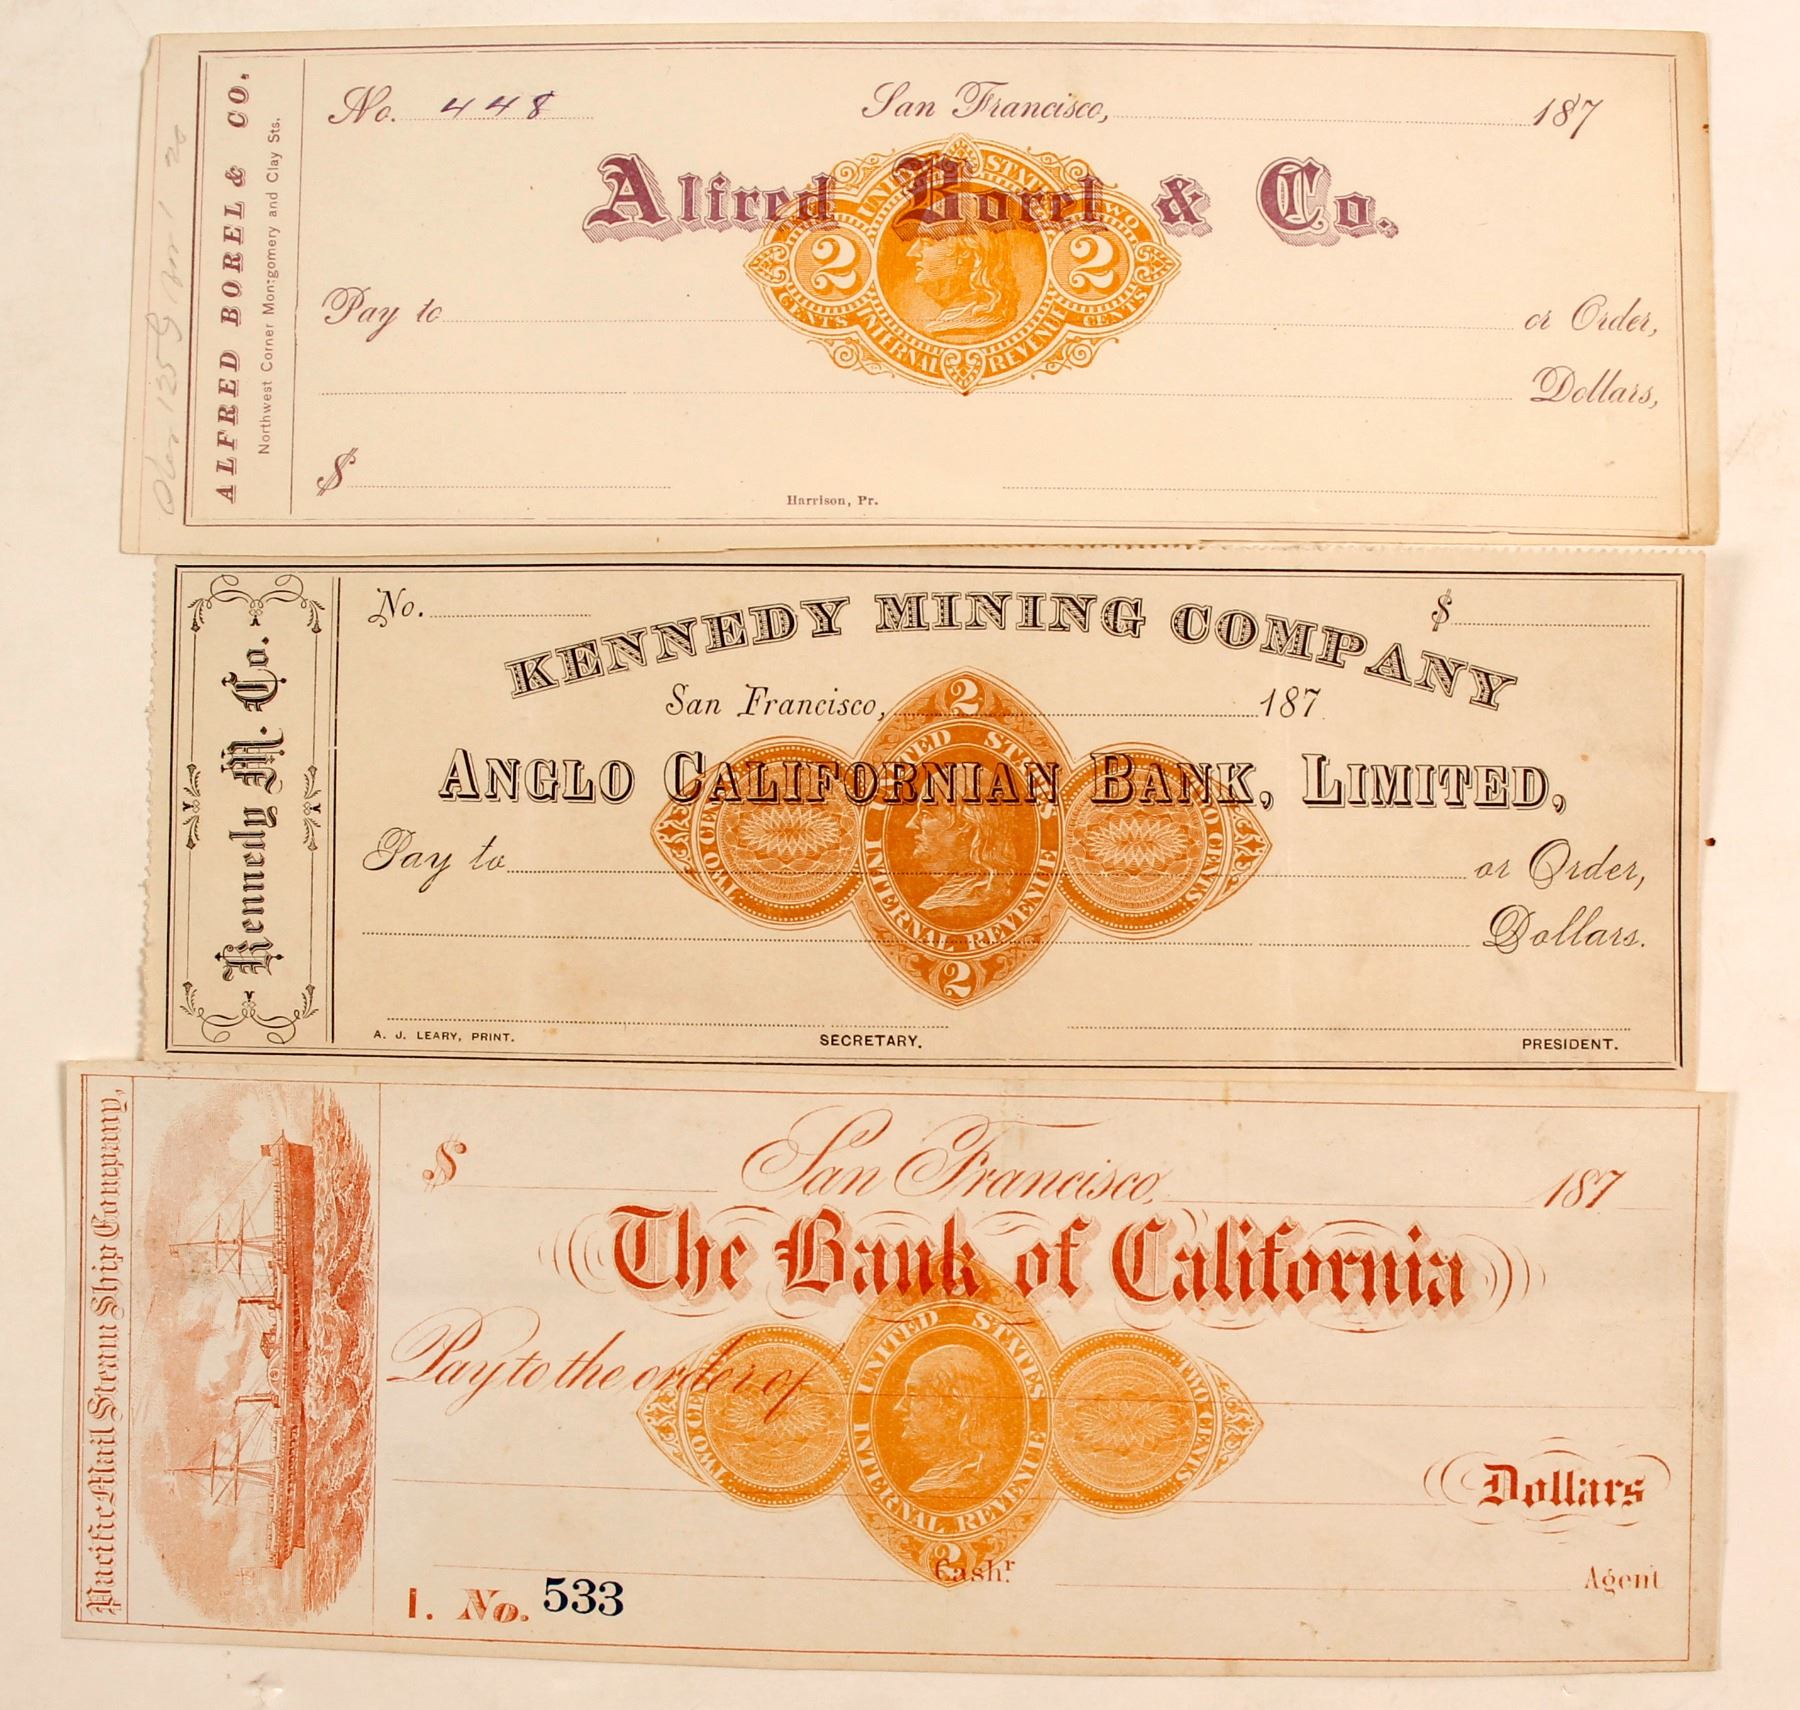 ALFRED BOREL & CO.
Northwest Corner Montgomery and Clay Sts.
No. 448 San Francisco, 187
Alfred Borel & Co.
UNITED STATES
TWO
2 2
CENTS INTERNAL REVENUE CENTS
Pay to or Order,
Dollars,
$
Harrison, Pr.
Kennedy M. Co.
No. $
KENNEDY MINING COMPANY
San Francisco, 187
2
UNITED STATES
ANGLO CALIFORNIAN BANK, LIMITED,
TWO CENTS TWO CENTS
INTERNAL REVENUE
Pay to or Order,
Dollars.
2
A. J. LEARY, PRINT. SECRETARY. PRESIDENT.
Pacific Mail Steam Ship Company,
$ San Francisco, 187
The Bank of California
UNITED STATES
Pay to the order of
TWO CENTS TWO CENTS
INTERNAL REVENUE
Dollars
2
Cash.r Agent
1. No. 533